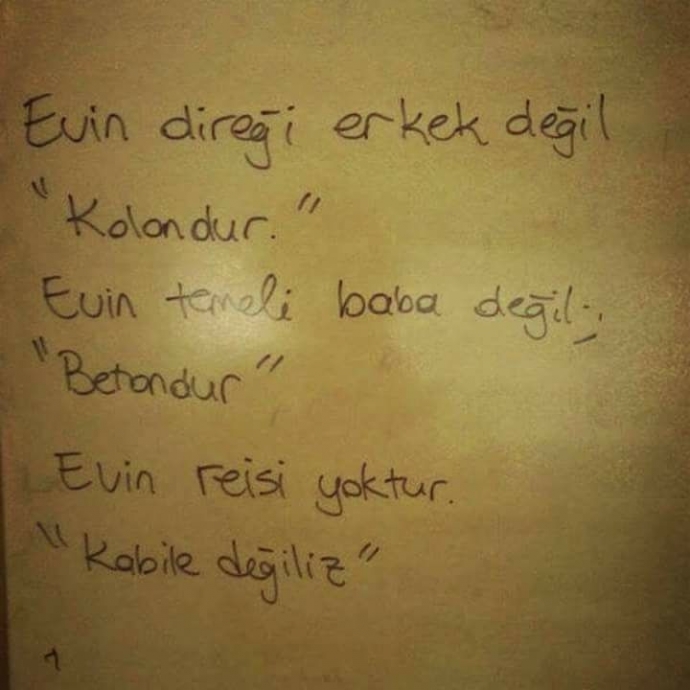 Evin direği erkek değil
"Kolondur."
Evin temeli baba değil;
"Betondur"
Evin reisi yoktur.
"Kabile değiliz"